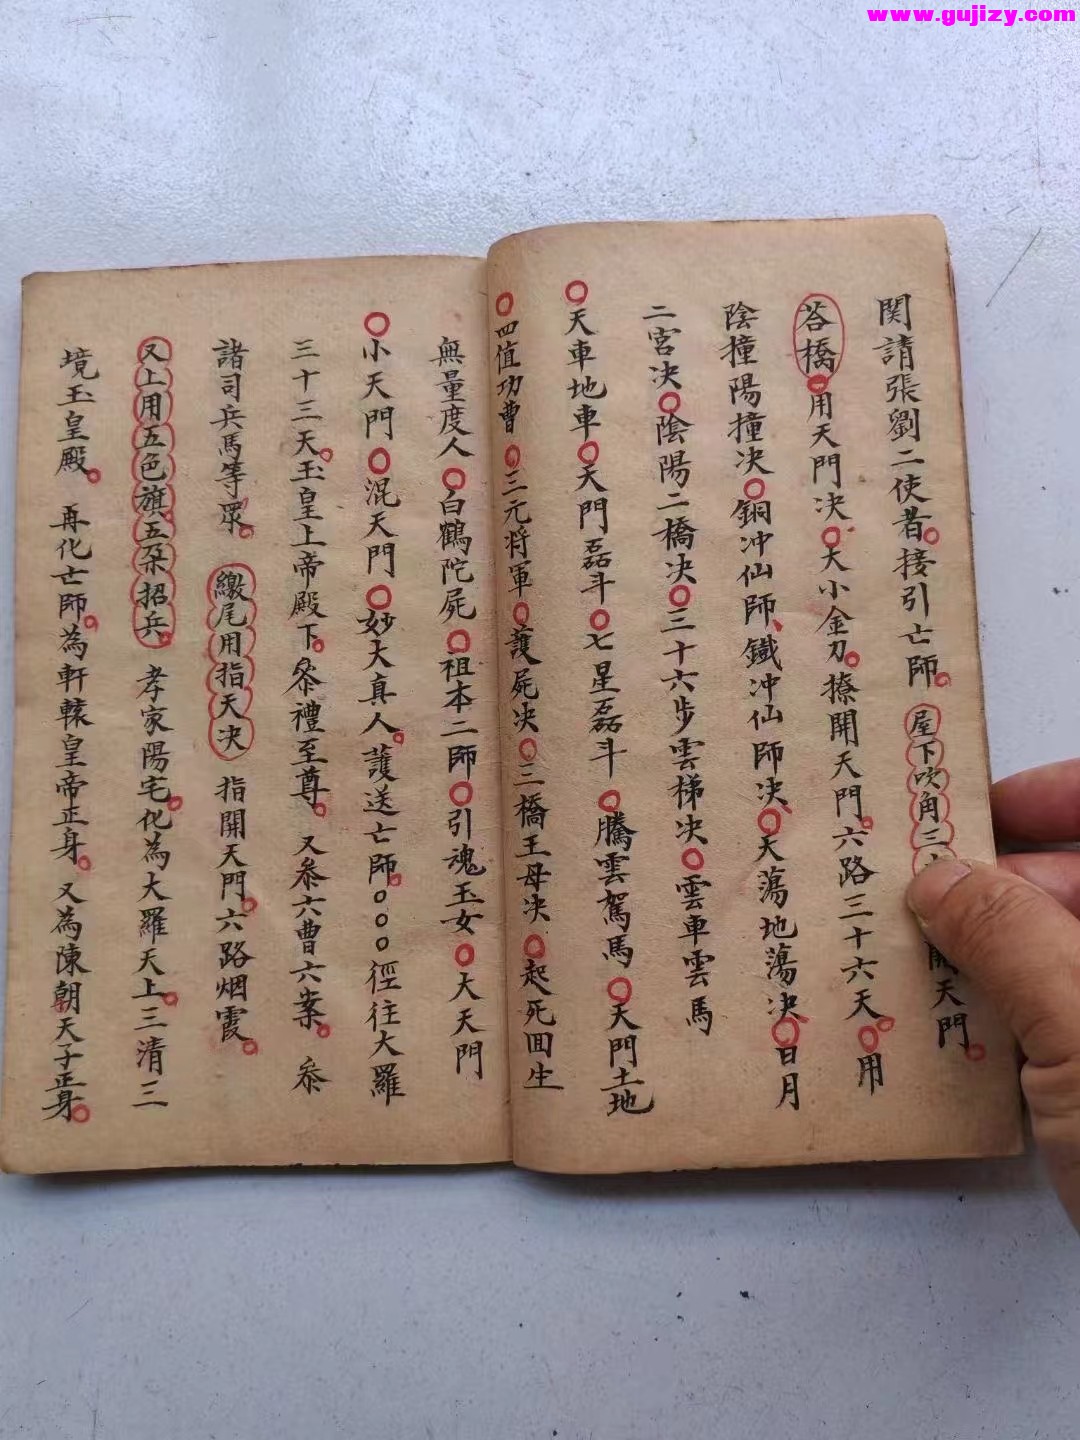 www.gujizy.com
関請張劉二使者。接引亡師。屋下吹角三開天門。
荅橋○用天門决○大小金刀。撩開天門。六路三十六天。○用
陰撞陽撞决○銅冲仙師、鐵冲仙師决○天蕩地蕩决○日月
二宮决○陰陽二橋决○三十六步雲梯决○雲車雲馬
○天車地車○天門磊斗○七星磊斗○騰雲駕馬○天門土地
○四值功曹○三元将軍○護屍决○三橋王母决○起死囬生
無量度人○白鶴陀屍○祖本二師○引魂玉女○大天門
○小天門○混天門○妙大真人。護送亡師。○○○徑往大羅
三十三天。玉皇上帝殿下。叅禮至尊。又叅六曹六案。叅
諸司兵馬等眾。繳尾用指天决 指開天門。六路烟霞。
又上用五色旗五朵招兵。孝家陽宅。化為大羅天上。三清三
境玉皇殿。再化亡師。為軒轅皇帝正身。又為陳朝天子正身。